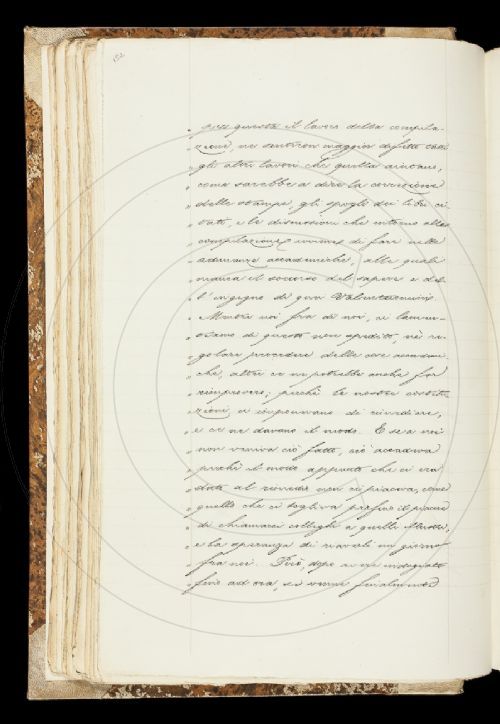 152
questo il lavoro della compila-
zione, ne sentiron maggior difetto tutti
gli altri lavori che quella aiutano,
come sarebbe a dire la correzione
delle stampe, gli spogli dei libri ci-
tati, e le discussioni che intorno alla
compilazione di fare nelle
adunanze accademiche, alle quali
manca il soccorso del sapere e del-
l'ingegno di quei Valentuomini.
Mentre noi fra di noi, ci lamen-
tiamo di questo non spedito, nè re-
golare procedere delle cose accademi-
che, altri ce ne potrebbe anche far
rimprovero; perchè le nostre costitu-
zioni, c'imponevano di rimediare,
e ce ne davano il modo. E se a noi
non veniva ciò fatto, ciò accadeva
perchè il modo appunto che ci era
dato al rimedio non ci piaceva, come
quello che ci toglieva il piacere
di chiamarci colleghi a quelli illustri,
e la speranza di riaverli un giorno
fra noi. Però, dopo aver indugiato
fino ad ora, si venne finalmente